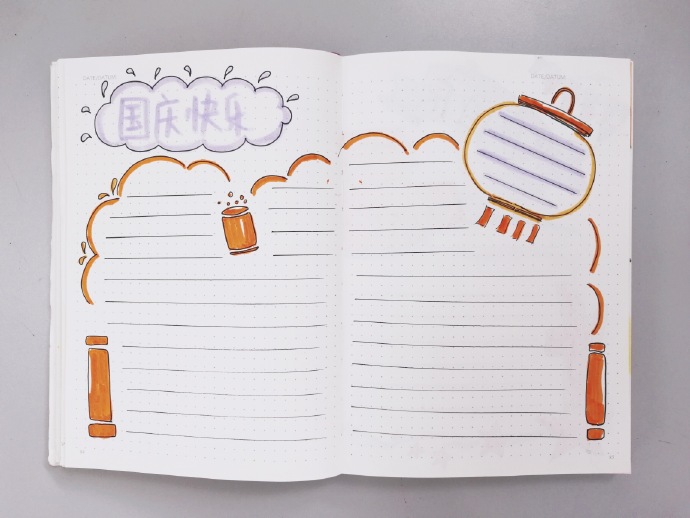 DATE/DATUM
DATE/DATUM
国庆快乐